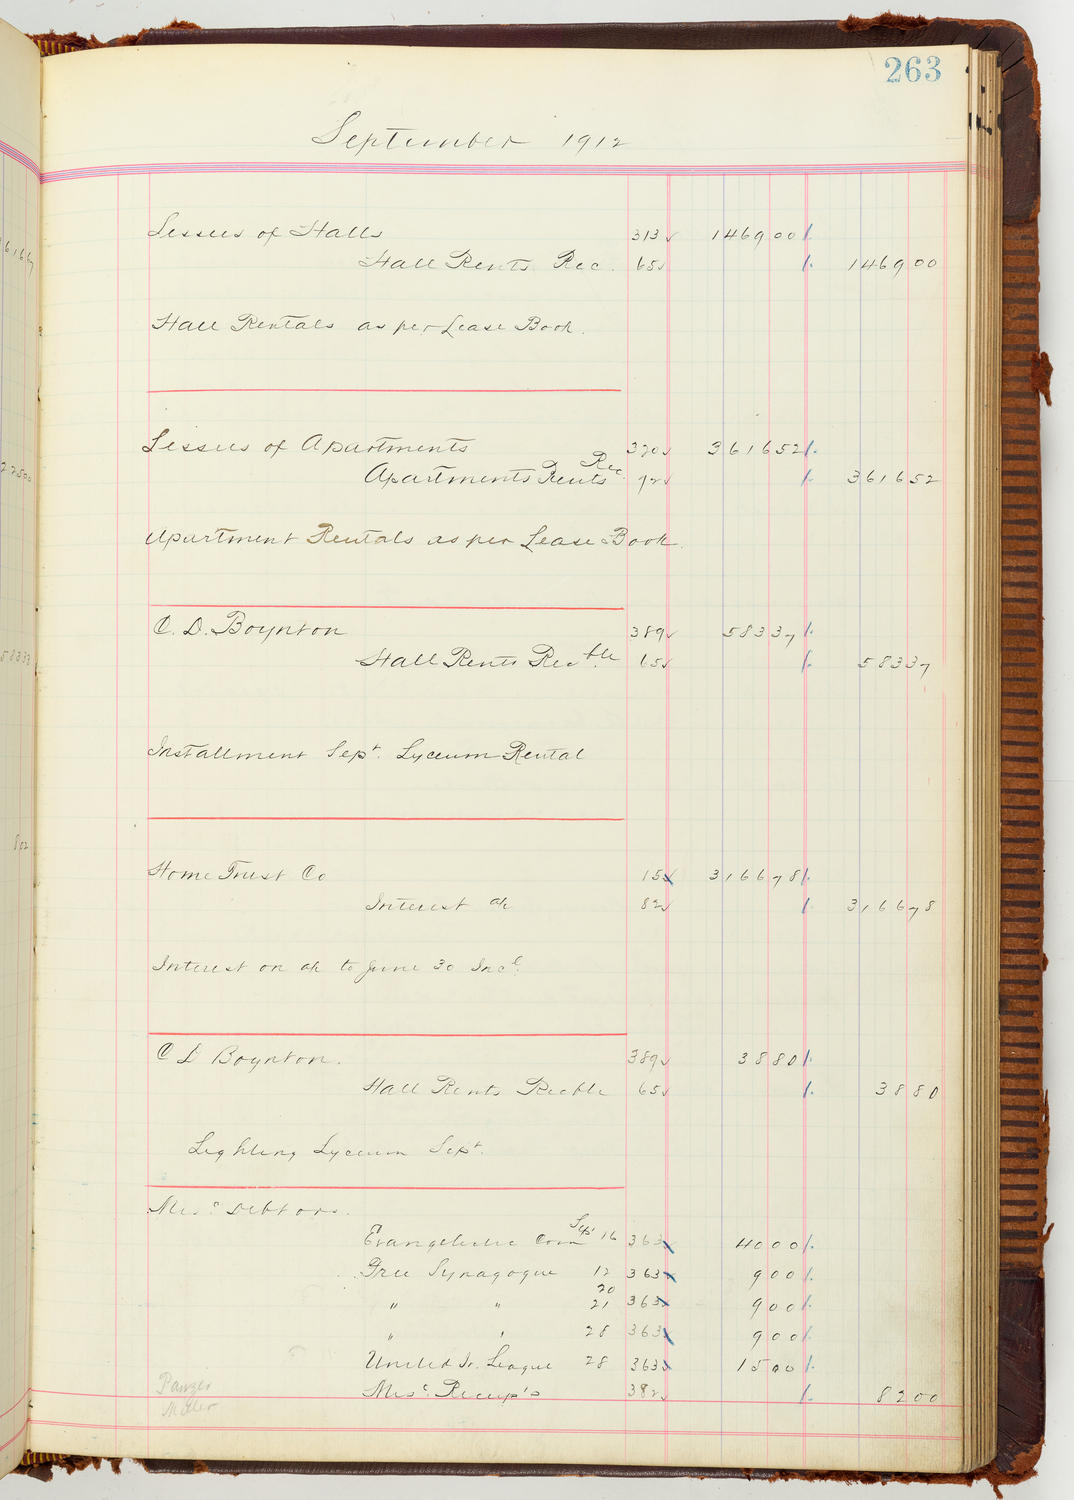 263
September 1912
Lessees of Halls 313 1469 00
Hall Rents Rec. 65 1469 00
Hall Rentals as per Lease Book.
Lessees of Apartments 320 3616 52
Apartments Rents Rec. 72 3616 52
Apartment Rentals as per Lease Book.
C. D. Boynton 389 583 37
Hall Rents Recble 65 583 37
Installment Sept. Lyceum Rental
Home Trust Co 15 3166 78
Interest a/c 82 3166 78
Interest on a/c to June 30 Incl.
C D Boynton. 389 38 80
Hall Rents Recble 65 38 80
Lighting Lyceum Sept.
Misc. Debtors.
Evangelistic Com Sept 16 363 40 00
Free Synagogue 12 363 9 00
" " 20 21 363 9 00
" " 28 363 9 00
United Ir. League 28 363 15 00
Misc. Receip's 382 82 00
Miller
61 67
225 00
583 33
8 02